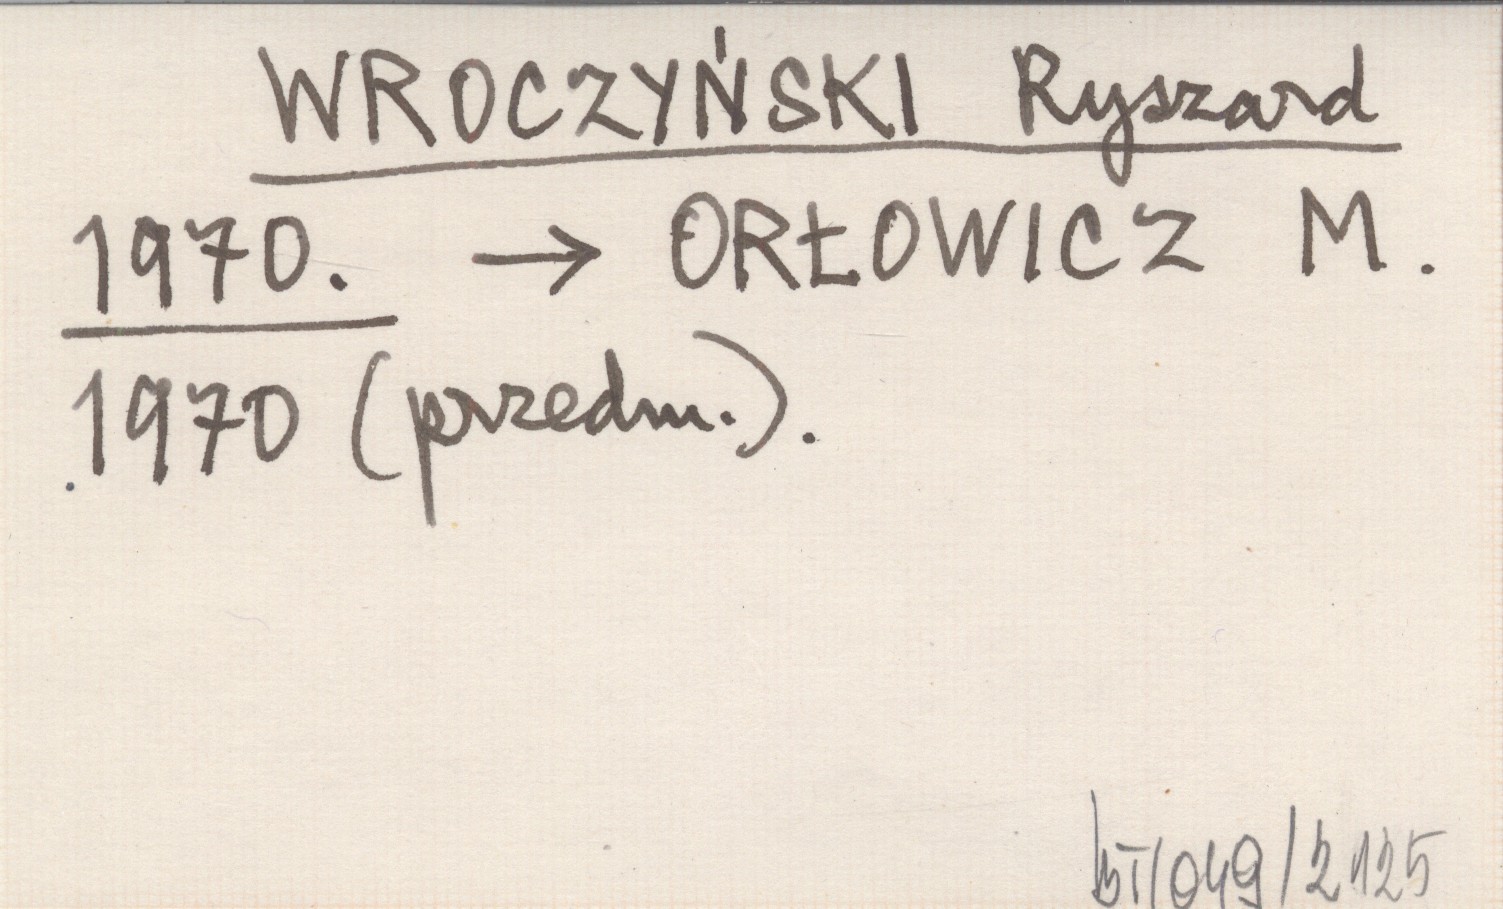 WROCZYŃSKI Ryszard
1970. → ORŁOWICZ M.
1970 (przedm.).
/049/2125